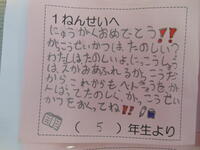 1ねんせいへ
にゅうがくおめでとう‼‼
がっこうせいかつは、たのしい?
わたしはたのしいよ。にっこうしょう
は、えがおあふれるがっこうだ
からこれからもべんきょうをが
んばってたのしく、がっこうせい
かつをおくってね‼
(5)年生より